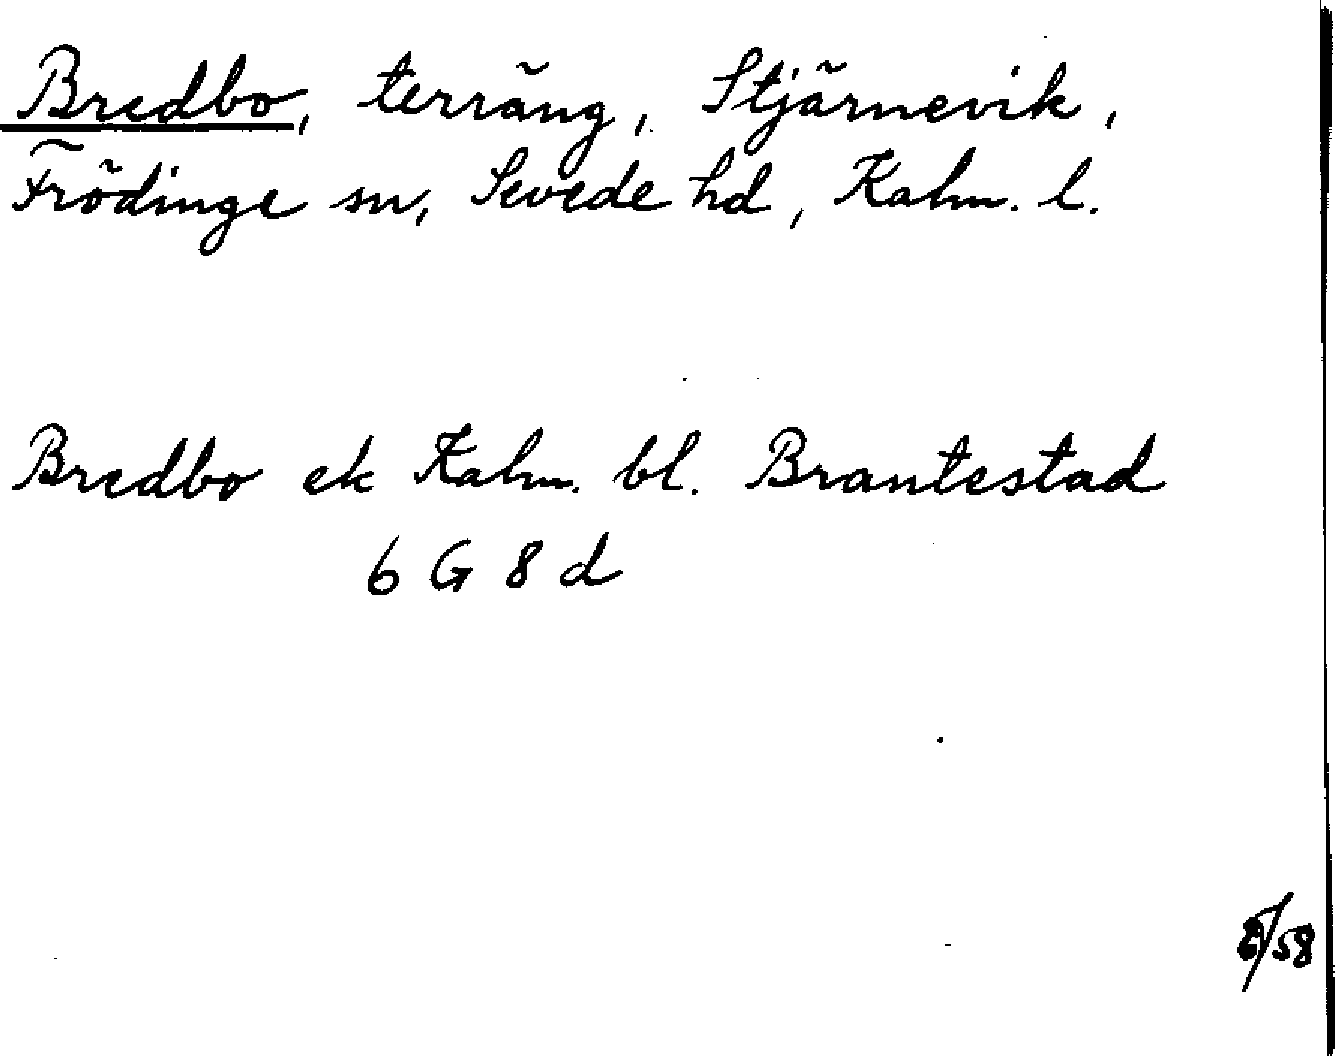 Bredbo, terräng, Stjärnevik,
Frödinge sn, Sevede hd, Kalm. l.
Bredbo ek Kalm. bl. Brantestad
6 G 8 d